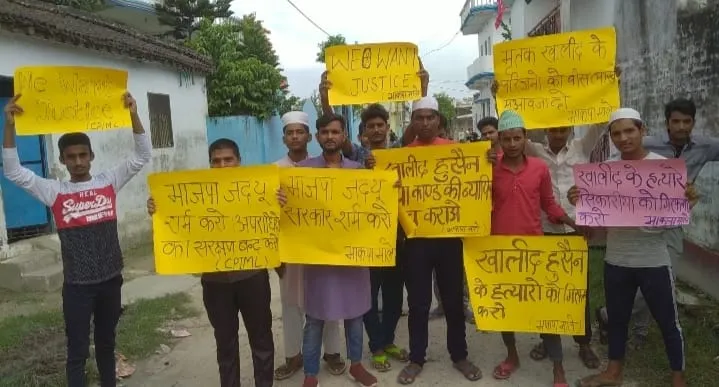 We Want
Justice
(CPIML)
WE WANT
JUSTICE
भाकपा माले
मृतक खालीद के
परिजनो को बीस लाख
मुआवजा दो
भाकपा माले
भाजपा जदयू
शर्म करो अपराधियो
का संरक्षण बन्द करो
(CPIML)
भाजपा जदयू
सरकार शर्म करो
भाकपा माले
खालीद हुसैन
कांड की
कराओ
खालीद हुसैन
के हत्यारो को गिरफ्तार
करो
(भाकपा माले)
खालीद के हत्यारे
को गिरफ्तार
करो
भाकपा माले
REAL
Super Dry